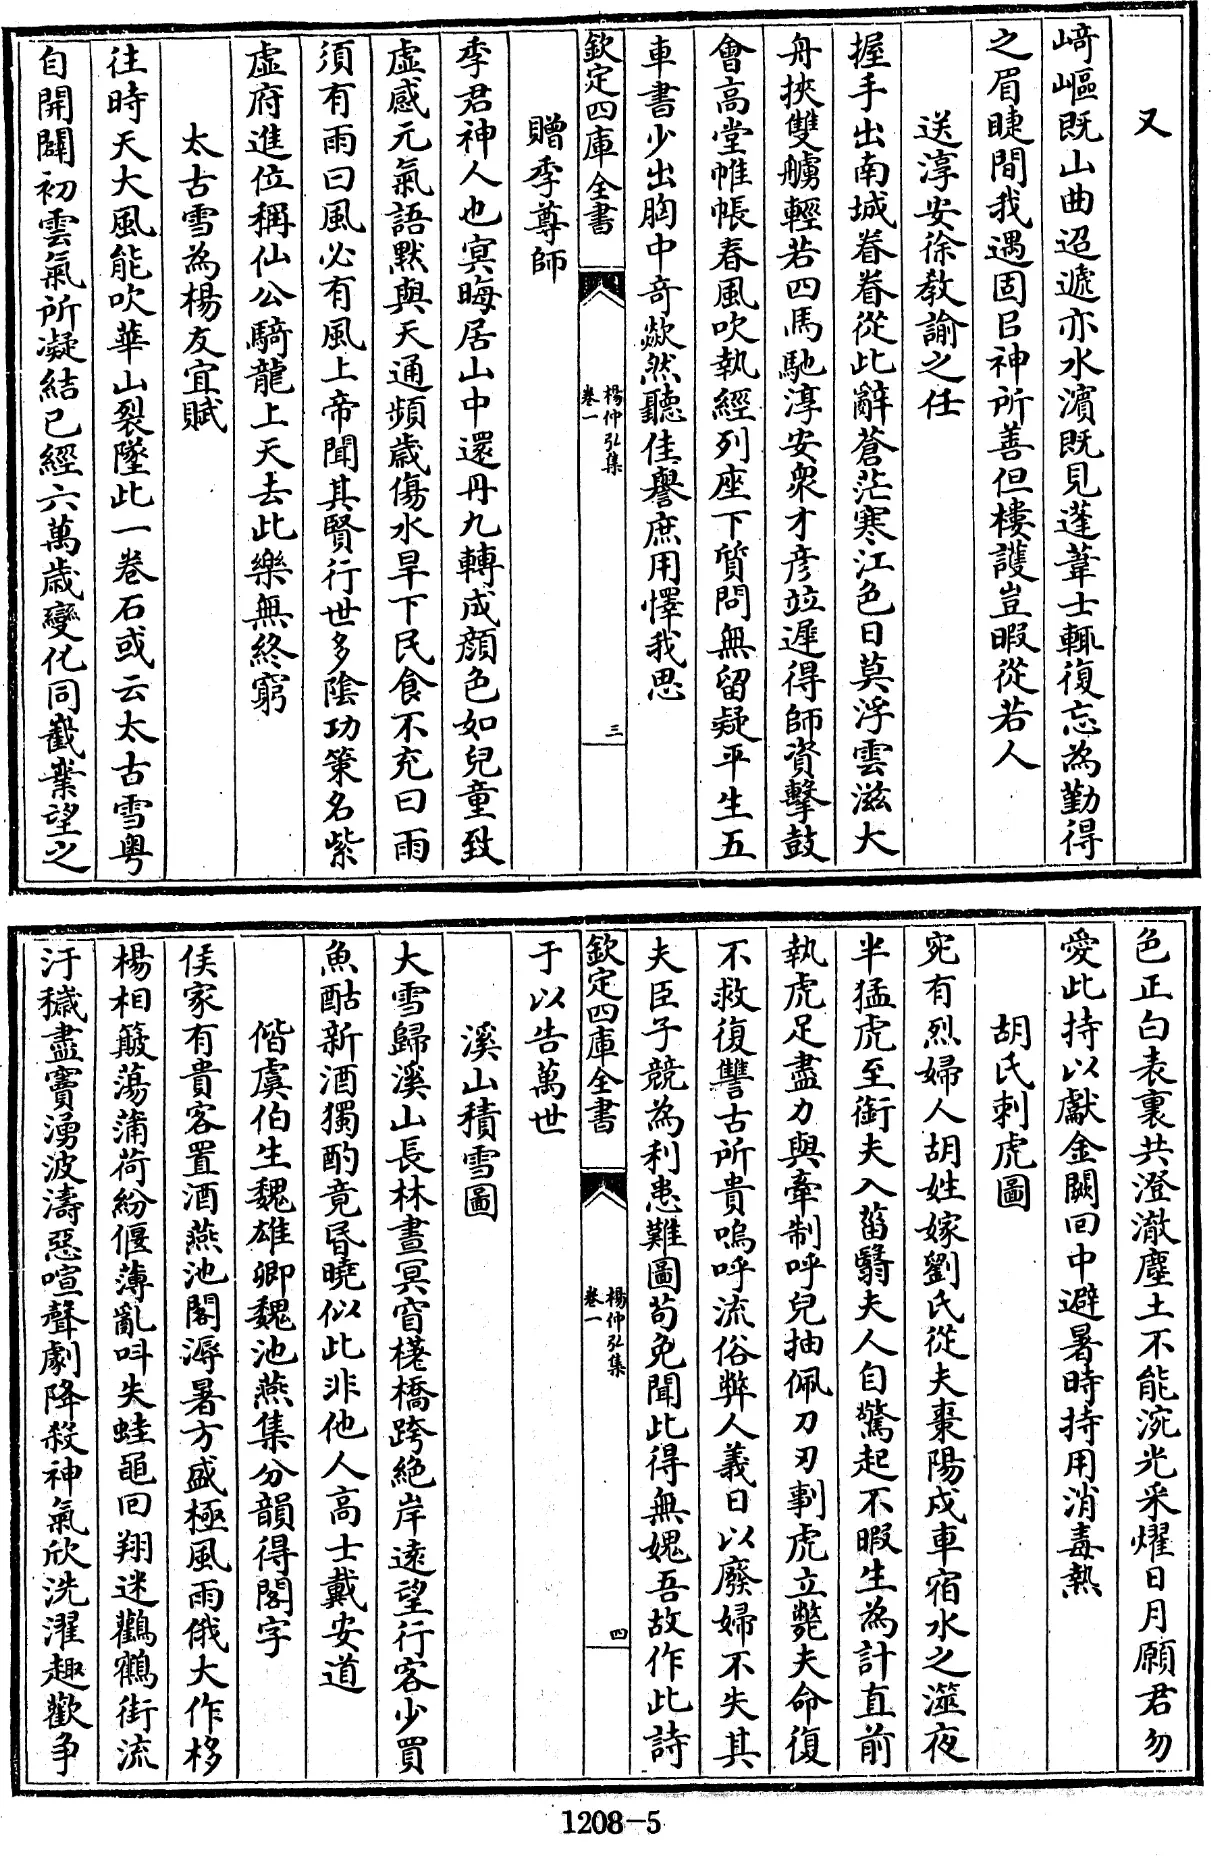 又
﨑嶇既山曲迢遞亦水濱既見蓬葦士輒復忘為勤得
之眉睫間我遇固已神所善但樓護豈暇從若人
送淳安徐教諭之任
握手出南城眷眷從此辭蒼茫寒江色日莫浮雲滋大
舟挾雙艣輕若四馬馳淳安衆才彦竝遲得師資擊鼓
會高堂帷帳春風吹執經列座下質問無留疑平生五
車書少出胸中奇歘然聽佳譽庶用懌我思
欽定四庫全書
楊仲弘集
卷一
三
贈李尊師
李君神人也㝠晦居山中還丹九轉成顔色如兒童致
虚感元氣語默與天通頻歲傷水旱下民食不充曰雨
須有雨曰風必有風上帝聞其賢行世多陰功策名紫
虚府進位稱仙公騎龍上天去此樂無終窮
太古雪為楊友宜賦
往時天大風能吹華山裂墜此一卷石或云太古雪粤
自開闢初雲氣所凝結已經六萬歲變化同巀嶪望之
色正白表裏共澄澈塵土不能涴光采燿日月願君勿
愛此持以獻金闕回中避暑時持用消毒熱
胡氏刺虎圖
宛有烈婦人胡姓嫁劉氏從夫棗陽戍車宿水之澨夜
半猛虎至銜夫入菑翳夫人自驚起不暇生為計直前
執虎足盡力與牽制呼兒抽佩刀刃剸虎立斃夫命復
不救復讐古所貴嗚呼流俗弊人義日以廢婦不失其
夫臣子競為利患難圖苟免聞此得無媿吾故作此詩
欽定四庫全書
楊仲弘集
卷一
四
于以告萬世
溪山積雪圖
大雪歸溪山長林晝冥窅槎橋跨絶岸遠望行客少買
魚酤新酒獨酌竟昏曉似此非他人高士戴安道
偕虞伯生魏雄卿魏池燕集分韻得閣字
侯家有貴客置酒燕池閣溽暑方盛極風雨俄大作栘
楊相簸蕩蒲荷紛偃薄亂呌失蛙黽回翔迷鸛鶴街流
汙穢盡竇湧波濤惡喧聲劇降殺神氣欣洗濯趣歡争
1208-5